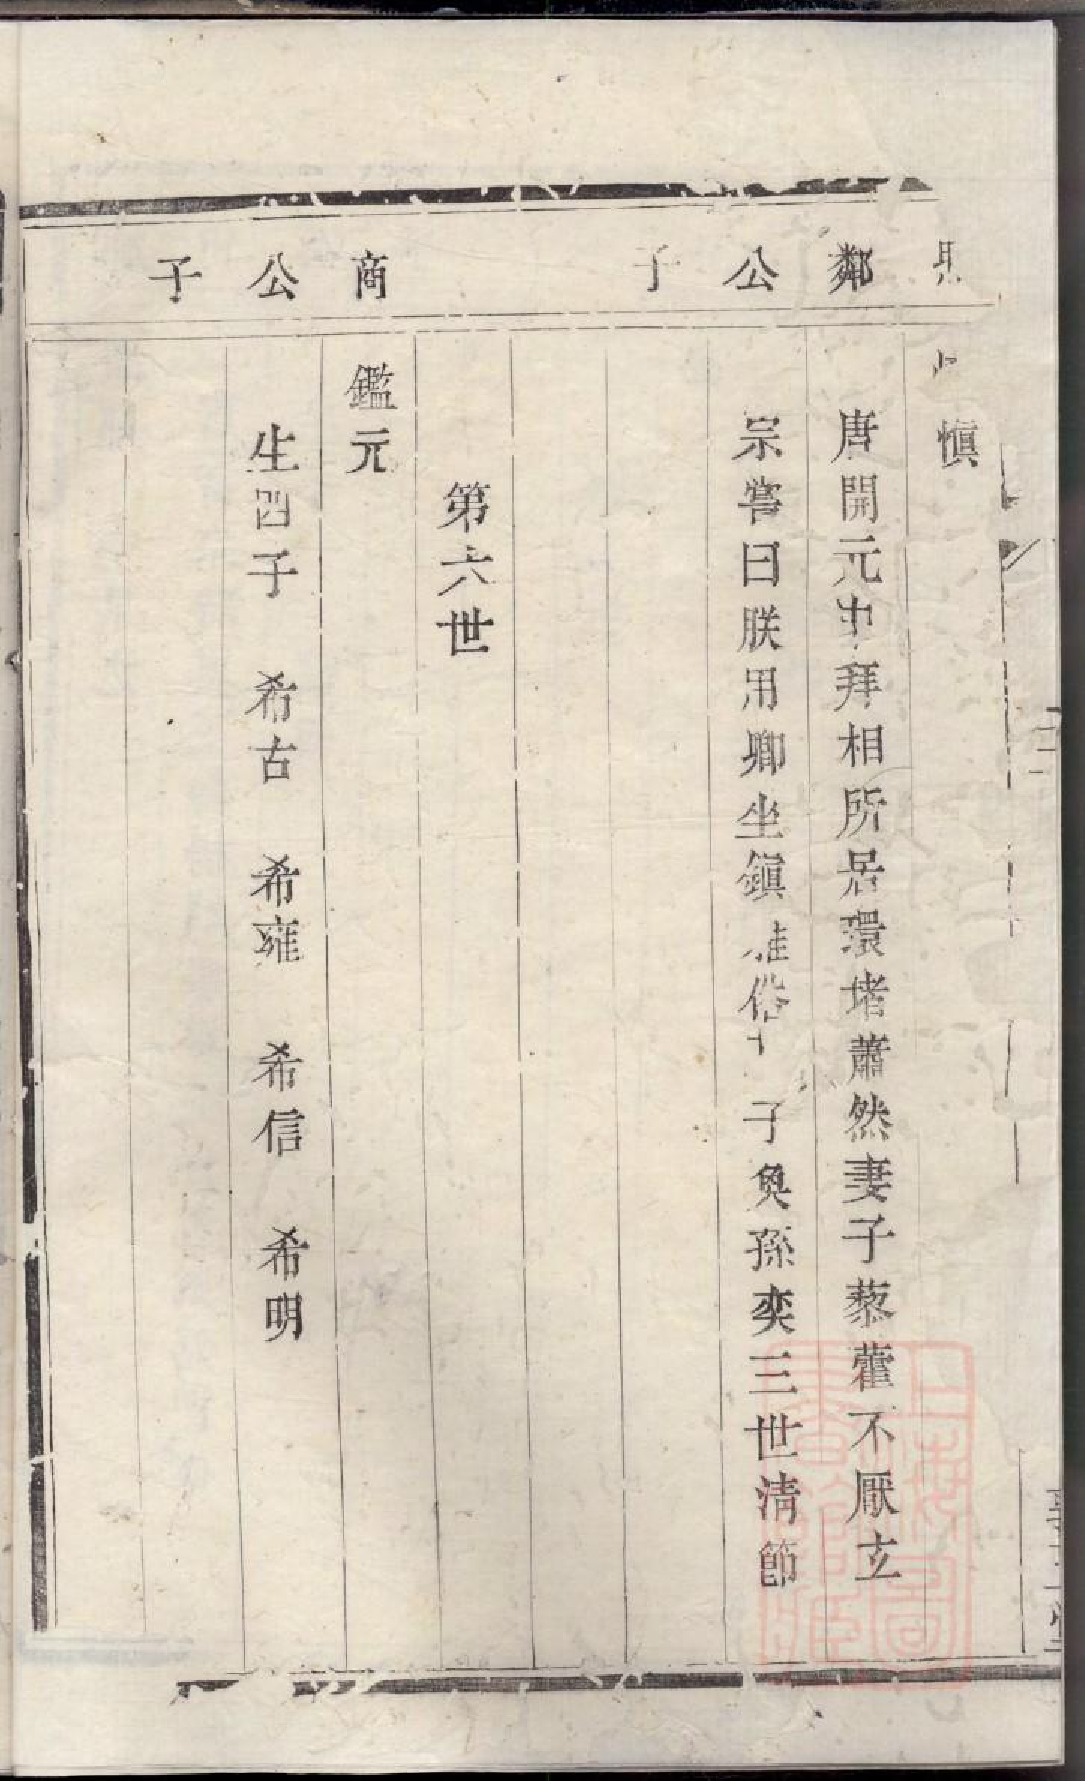 鄰公子
愼
唐開元中拜相所居環堵蕭然妻子藜藿不厭玄
宗嘗曰朕用卿坐鎮雅俗 子奐孫奕三世淸節
第六世
商公子
鑑元
生四子 希古 希雍 希信 希明